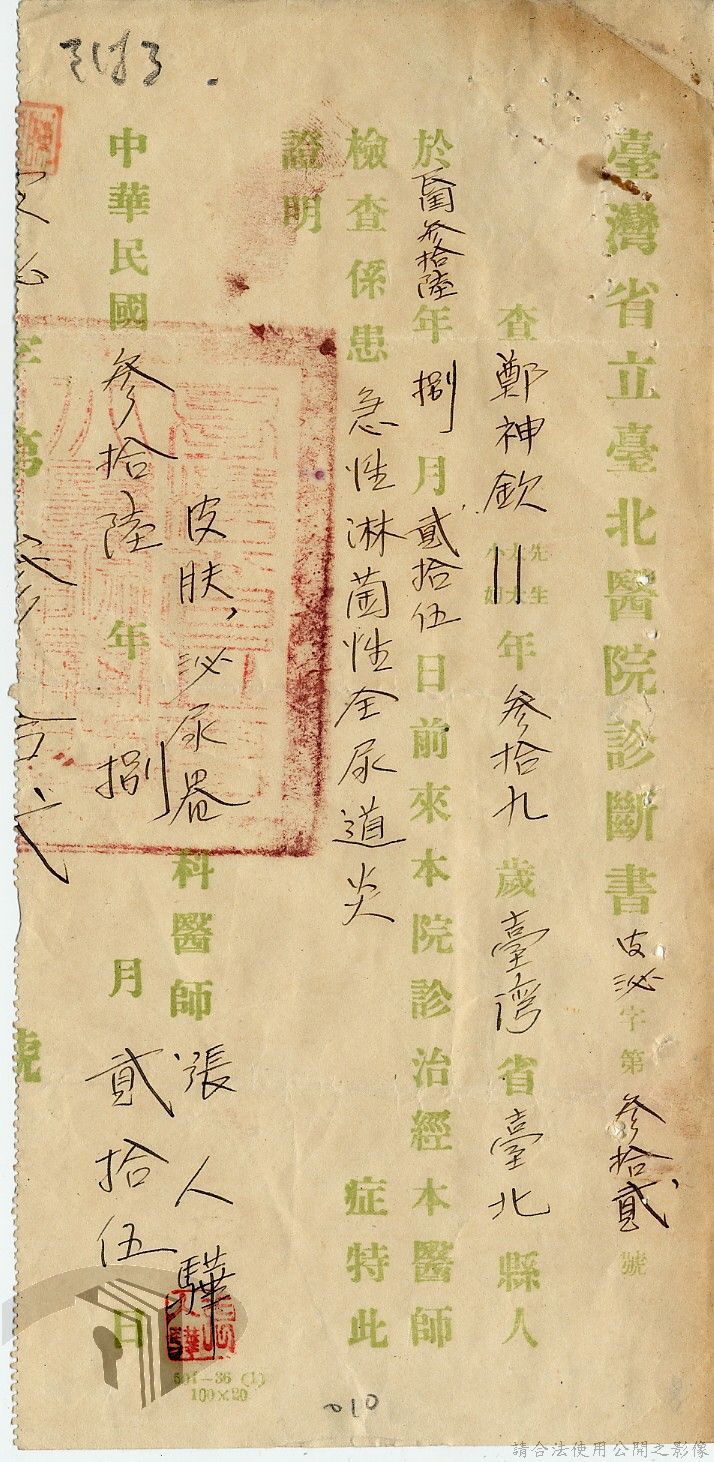 臺灣省立臺北醫院診斷書 皮泌字第參拾貳號
查鄭神欽 先生 太太 小姐 年參拾九歲臺灣省臺北縣人
於民國參拾陸年捌月貳拾伍日前來本院診治經本醫師
檢查係患急性淋菌性全尿道炎症特此
證明
皮肤,泌尿器科醫師張人驊
中華民國參拾陸年捌月貳拾伍日
字第 號
501-36 (1)
100×20
010
請合法使用公開之影像